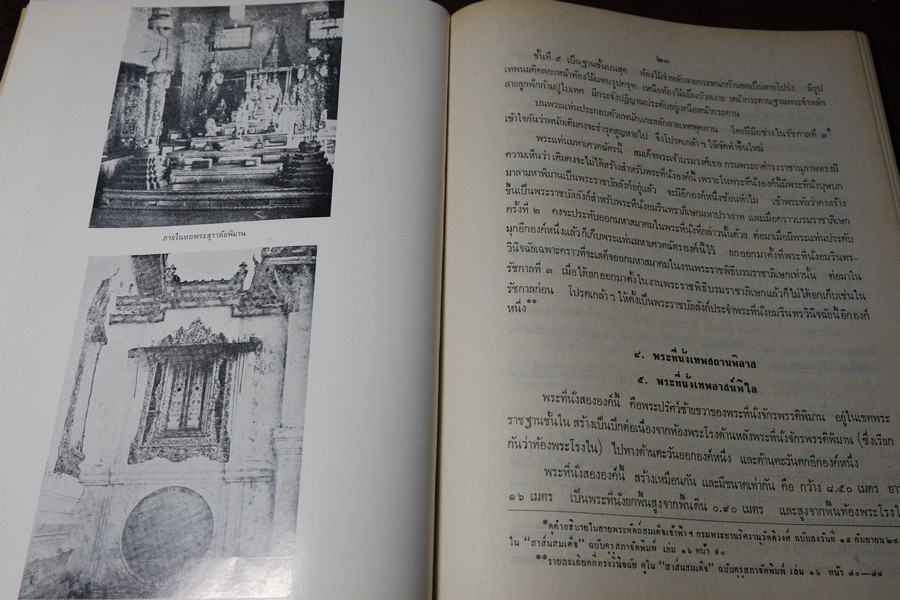 ภายในหอพระสุราลัยพิมาน
๒๑
ชั้นที่ ๕ เป็นฐานชั้นบนสุด ท้องไม้จำหลักลายกระหนกก้านขดเป็นลายโปร่ง มีรูป
เทพนมติดลอยหน้าท้องไม้แทนรูปครุฑ เหนือท้องไม้เป็นบัวหงาย หน้ากระดานฐานพระจำหลัก
ลายลูกฟักก้ามปูใบเทศ มีกระจังปฏิญาณประดับอยู่เหนือหน้ากระดาน
บนพระแท่นประกอบด้วยพนักแกะสลักลายเทศพุดตาน โดยฝีมือช่างในรัชกาลที่ ๓*
เข้าใจกันว่าพนักเดิมคงจะชำรุดสูญหายไป จึงโปรดเกล้า ฯ ให้จัดทำขึ้นใหม่
พระแท่นมหาเศวตฉัตรนี้ สมเด็จพระเจ้าบรมวงศ์เธอ กรมพระยาดำรงราชานุภาพทรงมี
ความเห็นว่า เดิมคงจะไม่ได้สร้างสำหรับพระที่นั่งองค์นี้ เพราะในพระที่นั่งองค์นี้มีพระที่นั่งบุษบก
มาลามหาพิมานเป็นพระราชบัลลังก์อยู่แล้ว จะมีอีกองค์หนึ่งซ้อนทำไม เข้าพระทัยว่าคงสร้าง
ขึ้นเป็นพระราชบัลลังก์สำหรับพระที่นั่งอมรินทราภิเษกมหาปราสาท และเมื่อคราวบรมราชาภิเษก
ครั้งที่ ๒ คงจะประทับออกมหาสมาคมในพระที่นั่งที่กล่าวนั้นด้วย ต่อมาเมื่อมีพระแท่นประดับ
มุกอีกองค์หนึ่งแล้วก็เก็บพระแท่นมหาเศวตฉัตรองค์นี้ไว้ ยกออกมาตั้งที่พระที่นั่งอมรินทร-
วินิจฉัยเฉพาะคราวที่จะเสด็จออกมหาสมาคมในงานพระราชพิธีบรมราชาภิเษกเท่านั้น ต่อมาใน
รัชกาลที่ ๓ เมื่อได้ยกออกมาตั้งในงานพระราชพิธีบรมราชาภิเษกแล้วก็ไม่ได้ยกเก็บเช่นใน
รัชกาลก่อน โปรดเกล้า ฯ ให้ตั้งเป็นพระราชบัลลังก์ประจำพระที่นั่งอมรินทรวินิจฉัยนี้อีกองค์
หนึ่ง**
๔. พระที่นั่งเทพสถานพิลาส
๕. พระที่นั่งเทพอาสน์พิไล
พระที่นั่งสององค์นี้ คือพระปรัศว์ซ้ายขวาของพระที่นั่งจักรพรรดิพิมาน อยู่ในเขตพระ
ราชฐานชั้นใน สร้างเป็นตึกต่อเนื่องจากท้องพระโรงด้านหลังพระที่นั่งจักรพรรดิพิมาน (ซึ่งเรียก
กันว่าท้องพระโรงใน) ไปทางด้านตะวันออกองค์หนึ่ง และด้านตะวันตกอีกองค์หนึ่ง
พระที่นั่งสององค์นี้ สร้างเหมือนกัน และมีขนาดเท่ากัน คือ กว้าง ๘.๕๐ เมตร
๑๖ เมตร เป็นพระที่นั่งยกพื้นสูงจากพื้นดิน ๐.๙๐ เมตร และสูงจากพื้นท้องพระโรง
*ดูคำอธิบายในลายพระหัตถ์สมเด็จเจ้าฟ้า ฯ กรมพระยานริศรานุวัดติวงศ์ ฉบับลงวันที่ ๑๕ กันยายน
ใน “สาส์นสมเด็จ” ฉบับคุรุสภาจัดพิมพ์ เล่ม ๑๖ หน้า ๙๐
**รายละเอียดที่ทรงวินิจฉัย ดูใน “สาส์นสมเด็จ” ฉบับคุรุสภาจัดพิมพ์ เล่ม ๑๖ หน้า ๘๐—๘๔